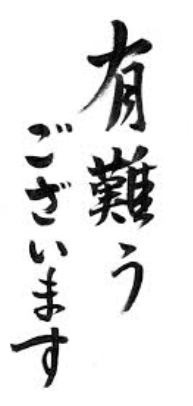 有難う
ございます